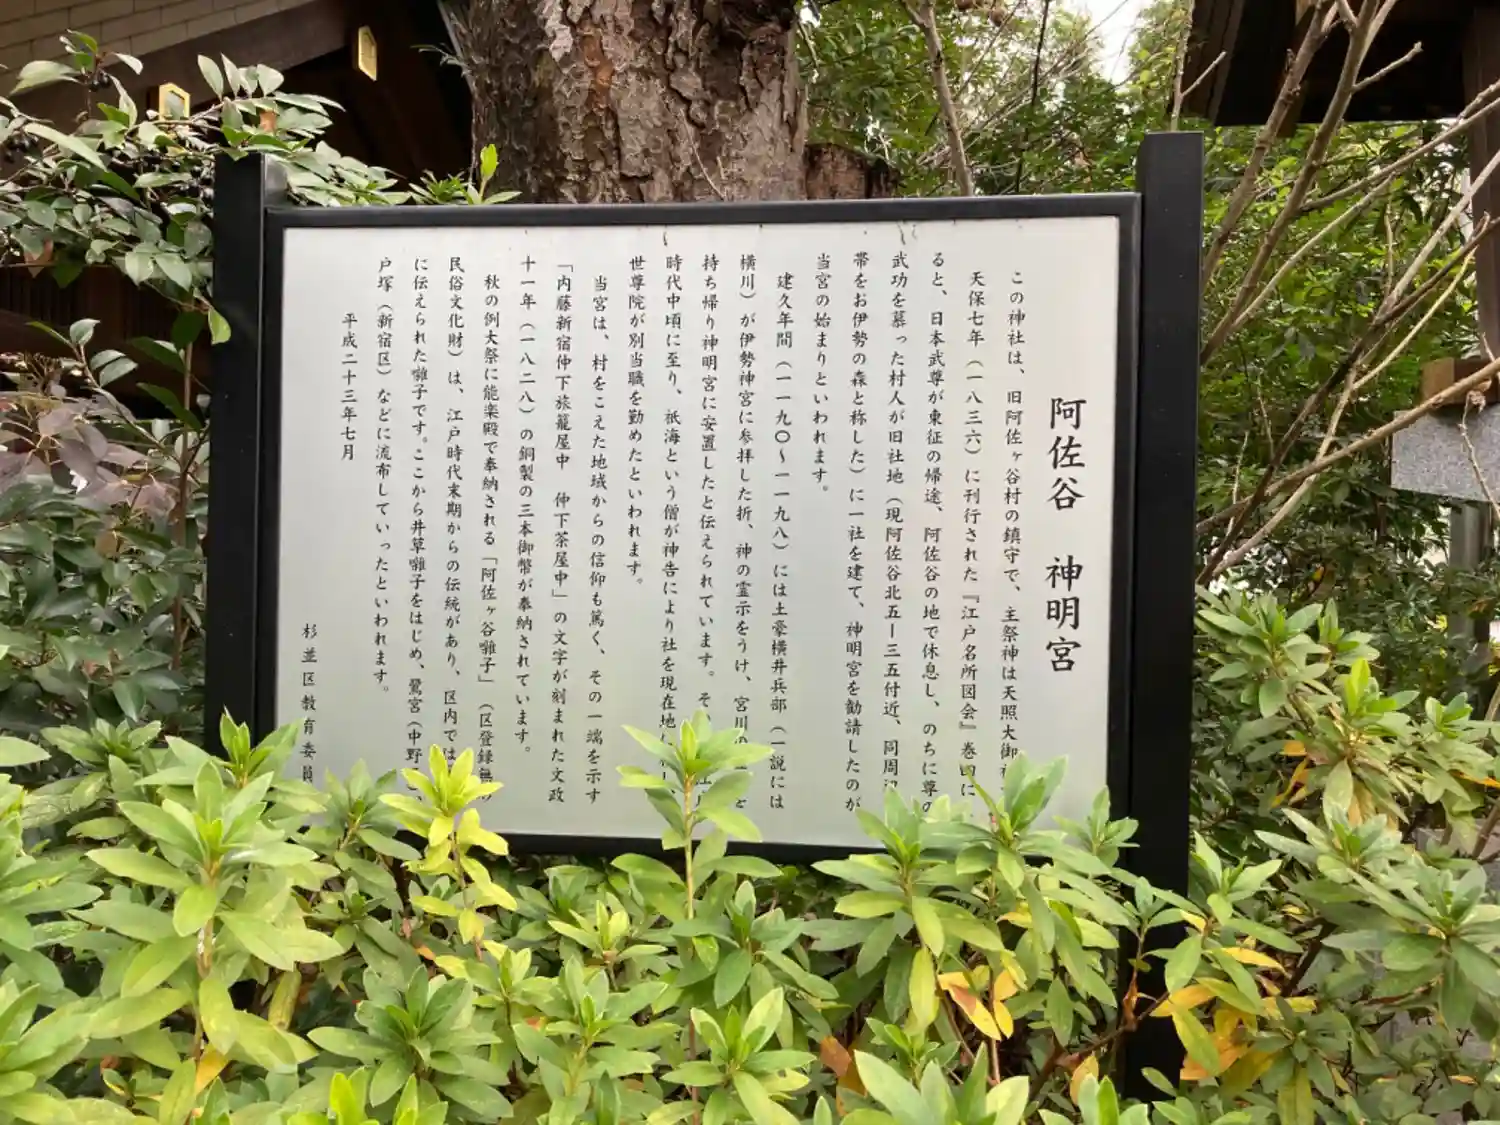 阿佐谷 神明宮
この神社は、旧阿佐ヶ谷村の鎮守で、主祭神は天照大御神
天保七年（一八三六）に刊行された『江戸名所図会』巻四に
ると、日本武尊が東征の帰途、阿佐谷の地で休息し、のちに尊の
武功を慕った村人が旧社地（現阿佐谷北五ー三五付近、同周辺
帯をお伊勢の森と称した）に一社を建て、神明宮を勧請したのが
当宮の始まりといわれます。
建久年間（一一九〇〜一一九八）には土豪横井兵部（一説には
横川）が伊勢神宮に参拝した折、神の霊示をうけ、宮川の を
持ち帰り神明宮に安置したと伝えられています。そ
時代中頃に至り、祇海という僧が神告により社を現在地
世尊院が別当職を勤めたといわれます。
当宮は、村をこえた地域からの信仰も篤く、その一端を示す
「内藤新宿仲下旅籠屋中 仲下茶屋中」の文字が刻まれた文政
十一年（一八二八）の銅製の三本御幣が奉納されています。
秋の例大祭に能楽殿で奉納される「阿佐ヶ谷囃子」（区登録無
民俗文化財）は、江戸時代末期からの伝統があり、区内では
に伝えられた囃子です。ここから井草囃子をはじめ、鷺宮（中野
戸塚（新宿区）などに流布していったといわれます。
平成二十三年七月
杉並区教育委員